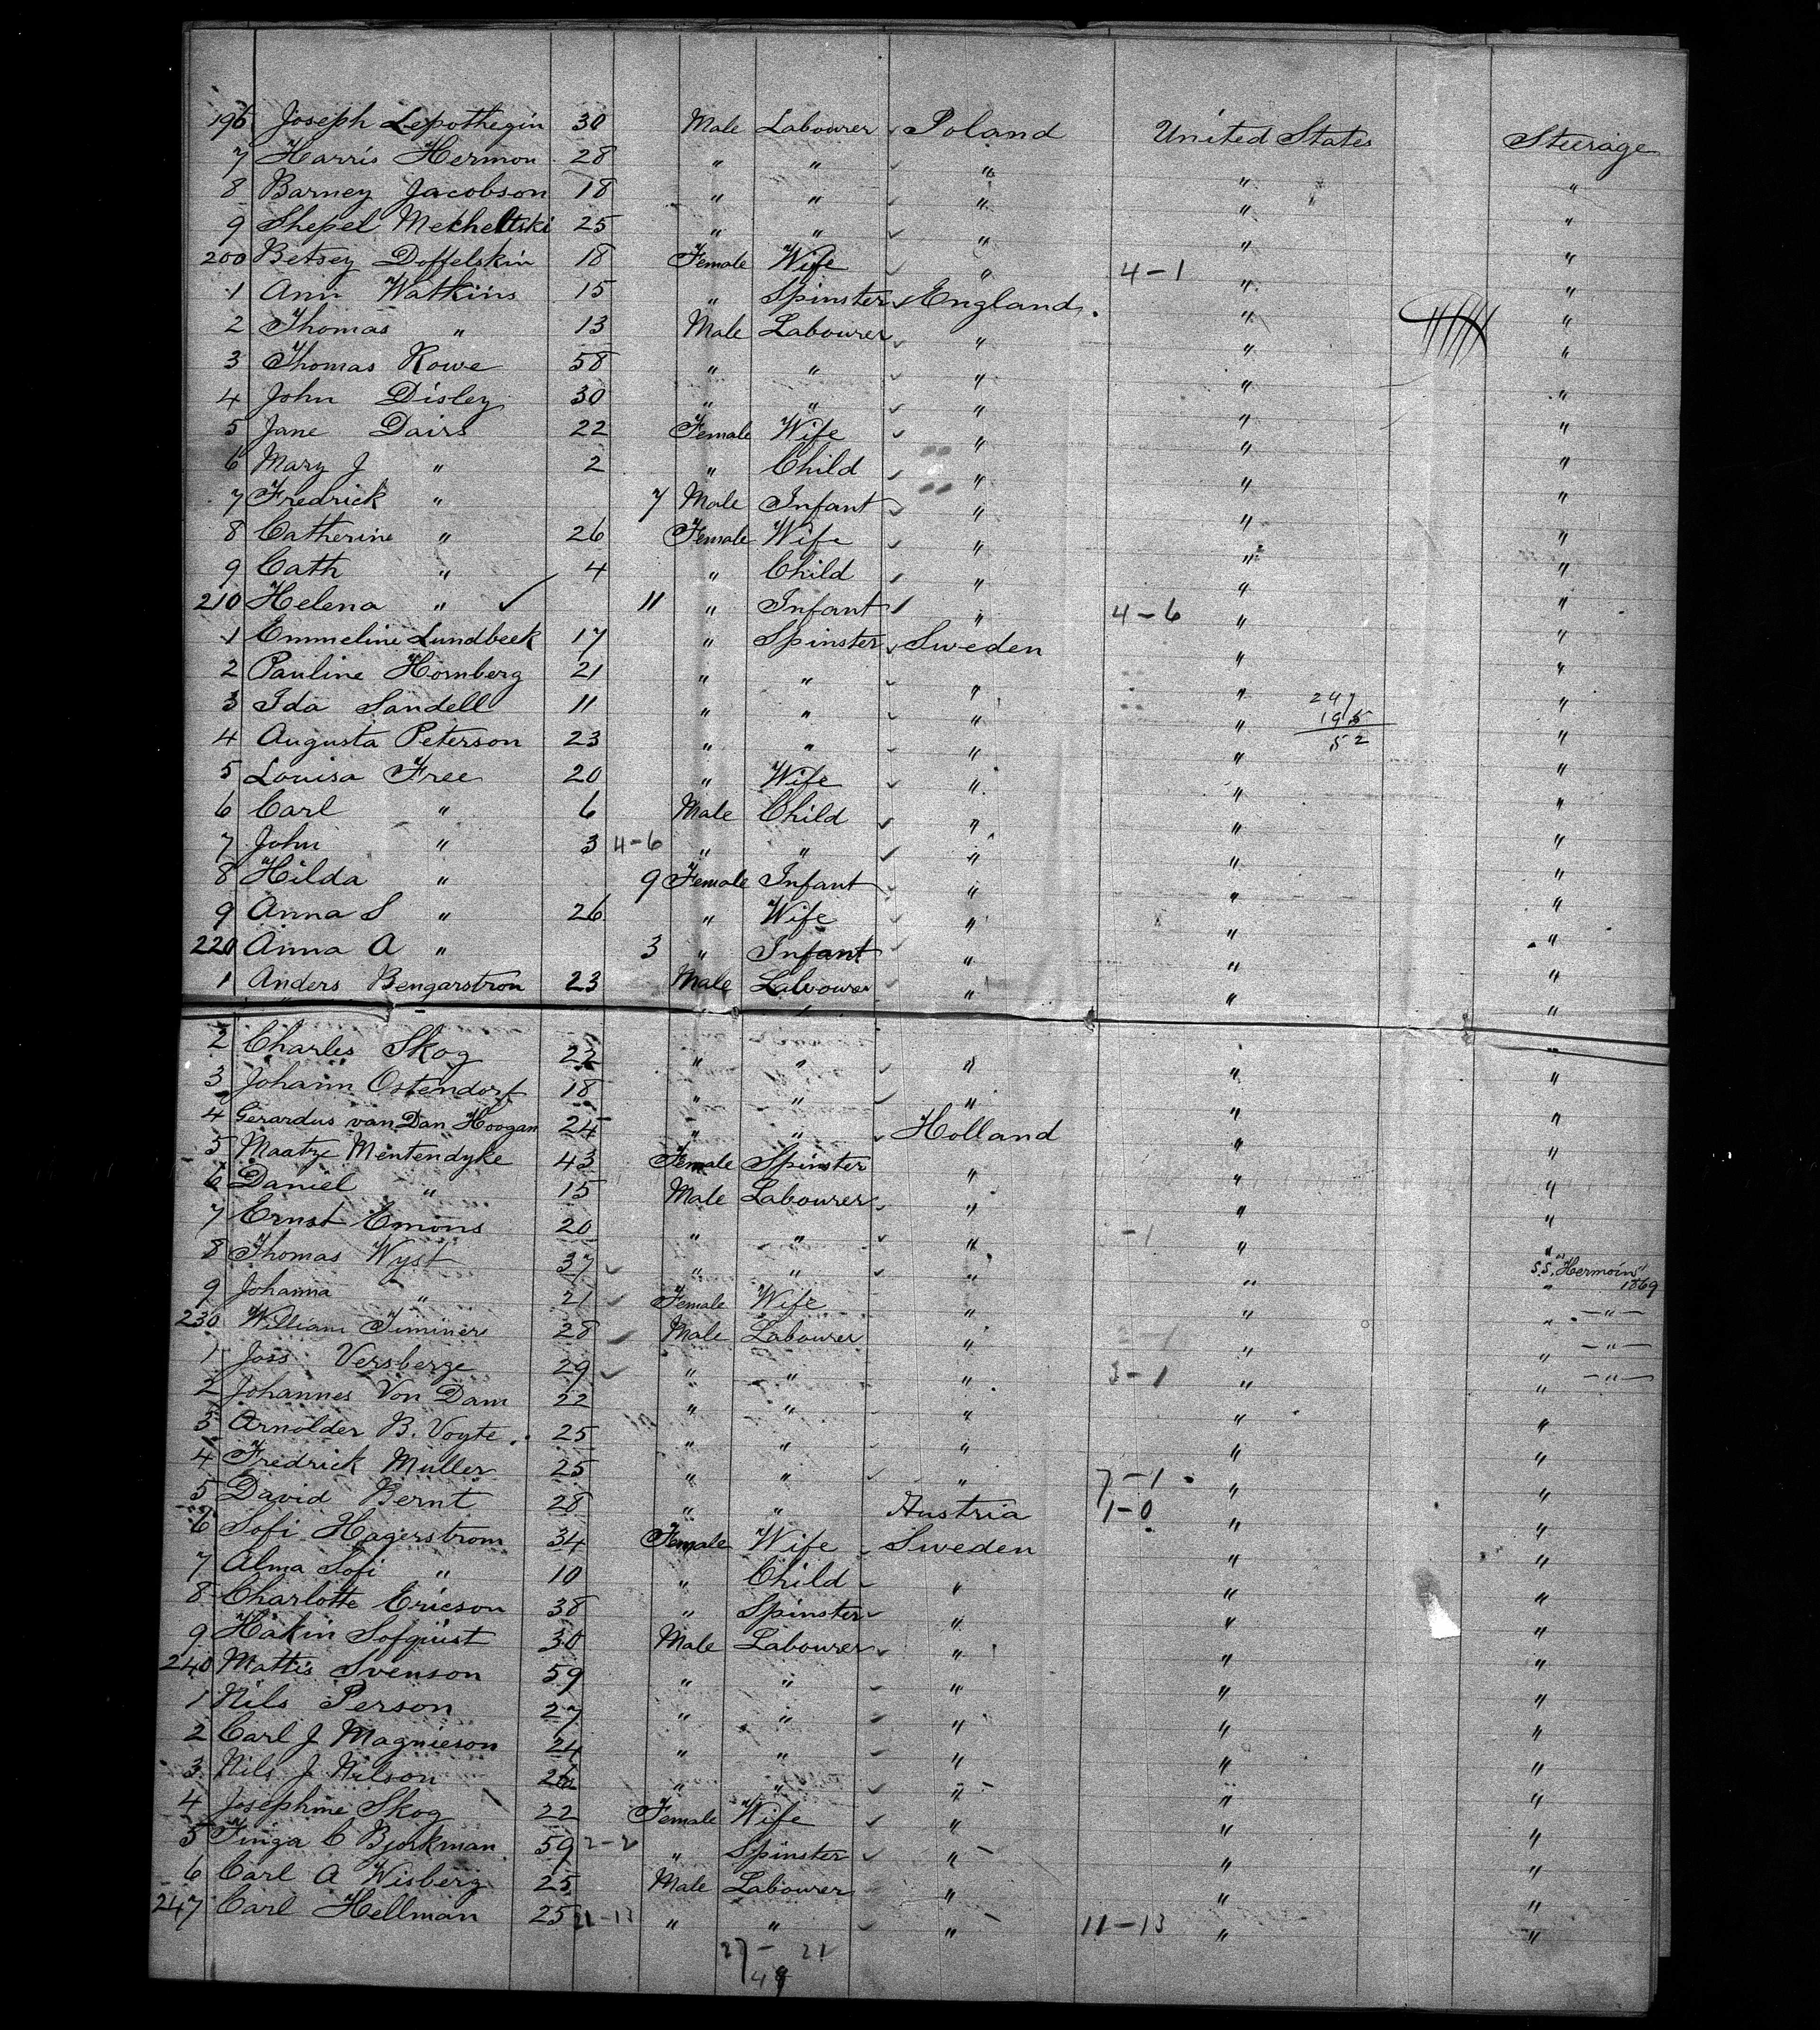 196 Joseph Lepothegin 30 Male Labourer Poland United States Steerage
7 Harris Hermon 28 " " " " "
8 Barney Jacobson 18 " " " " "
9 Shepel Mecheltski 25 " " " " "
200 Betsey Doffelskin 18 Female Wife " 4-1 " "
1 Ann Watkins 15 " Spinster England " "
2 Thomas " 13 Male Labourer " " "
3 Thomas Rowe 58 " " " " "
4 John Disley 30 " " " " "
5 Jane Dairs 22 Female Wife " " "
6 Mary J " 2 " Child " " "
7 Fredrick " 7 Male Infant " " "
8 Catherine " 26 Female Wife " " "
9 Cath " 4 " Child " " "
210 Helena " ✓ 11 " Infant " 4-6 " "
1 Emmeline Lundbeek 17 " Spinster Sweden " "
2 Pauline Homberg 21 " " " " "
3 Ida Sandell 11 " " " " 247 "
195
4 Augusta Peterson 23 " " " " 52 "
5 Louisa Free 20 " Wife " " "
6 Carl " 6 Male Child " " "
7 John " 3 4-6 " " " " "
8 Hilda " 9 Female Infant " " "
9 Anna S " 26 " Wife " " "
220 Anna A " 3 " Infant " " "
1 Anders Bengarstron 23 Male Labourer " " "
2 Charles Skog 22 " " " " "
3 Johann Ostendorf 18 " " " " "
4 Gerardus van Dan Hoogan 24 " " Holland " "
5 Maatze Mentendyke 43 Female Spinster " " "
6 Daniel " 15 Male Labourer " " "
7 Ernst Emons 20 " " " -1 " "
8 Thomas Wyst 37 " " " " " S.S. "Hermoin" 1869
9 Johanna " 21 Female Wife " " " -"-
230 William Timiner 28 Male Labourer " " " -"-
1 Joss Versberge 29 " " " 3-1 " " -"-
2 Johannes Von Dam 22 " " " " "
3 Arnolder B. Voyte 25 " " " " "
4 Fredrick Muller 25 " " " 7-1 " "
5 David Bernt 28 " " Austria 1-0 " "
6 Sofi Hagerstrom 34 Female Wife Sweden " "
7 Alma Sofi " 10 " Child " " "
8 Charlotte Ericson 38 " Spinster " " "
9 Hakin Sofquist 30 Male Labourer " " "
240 Mattis Svenson 59 " " " " "
1 Nils Person 27 " " " " "
2 Carl J Magnieson 24 " " " " "
3 Nils J Nilson " " " " "
4 Josephine Skog 22 Female Wife " " "
5 Finga C Bjorkman 59 2-2 " Spinster " " "
6 Carl A Wisberg 25 Male Labourer " " "
247 Carl Hellman 25 11-13 " " " 11-13 " "
27- 21
48